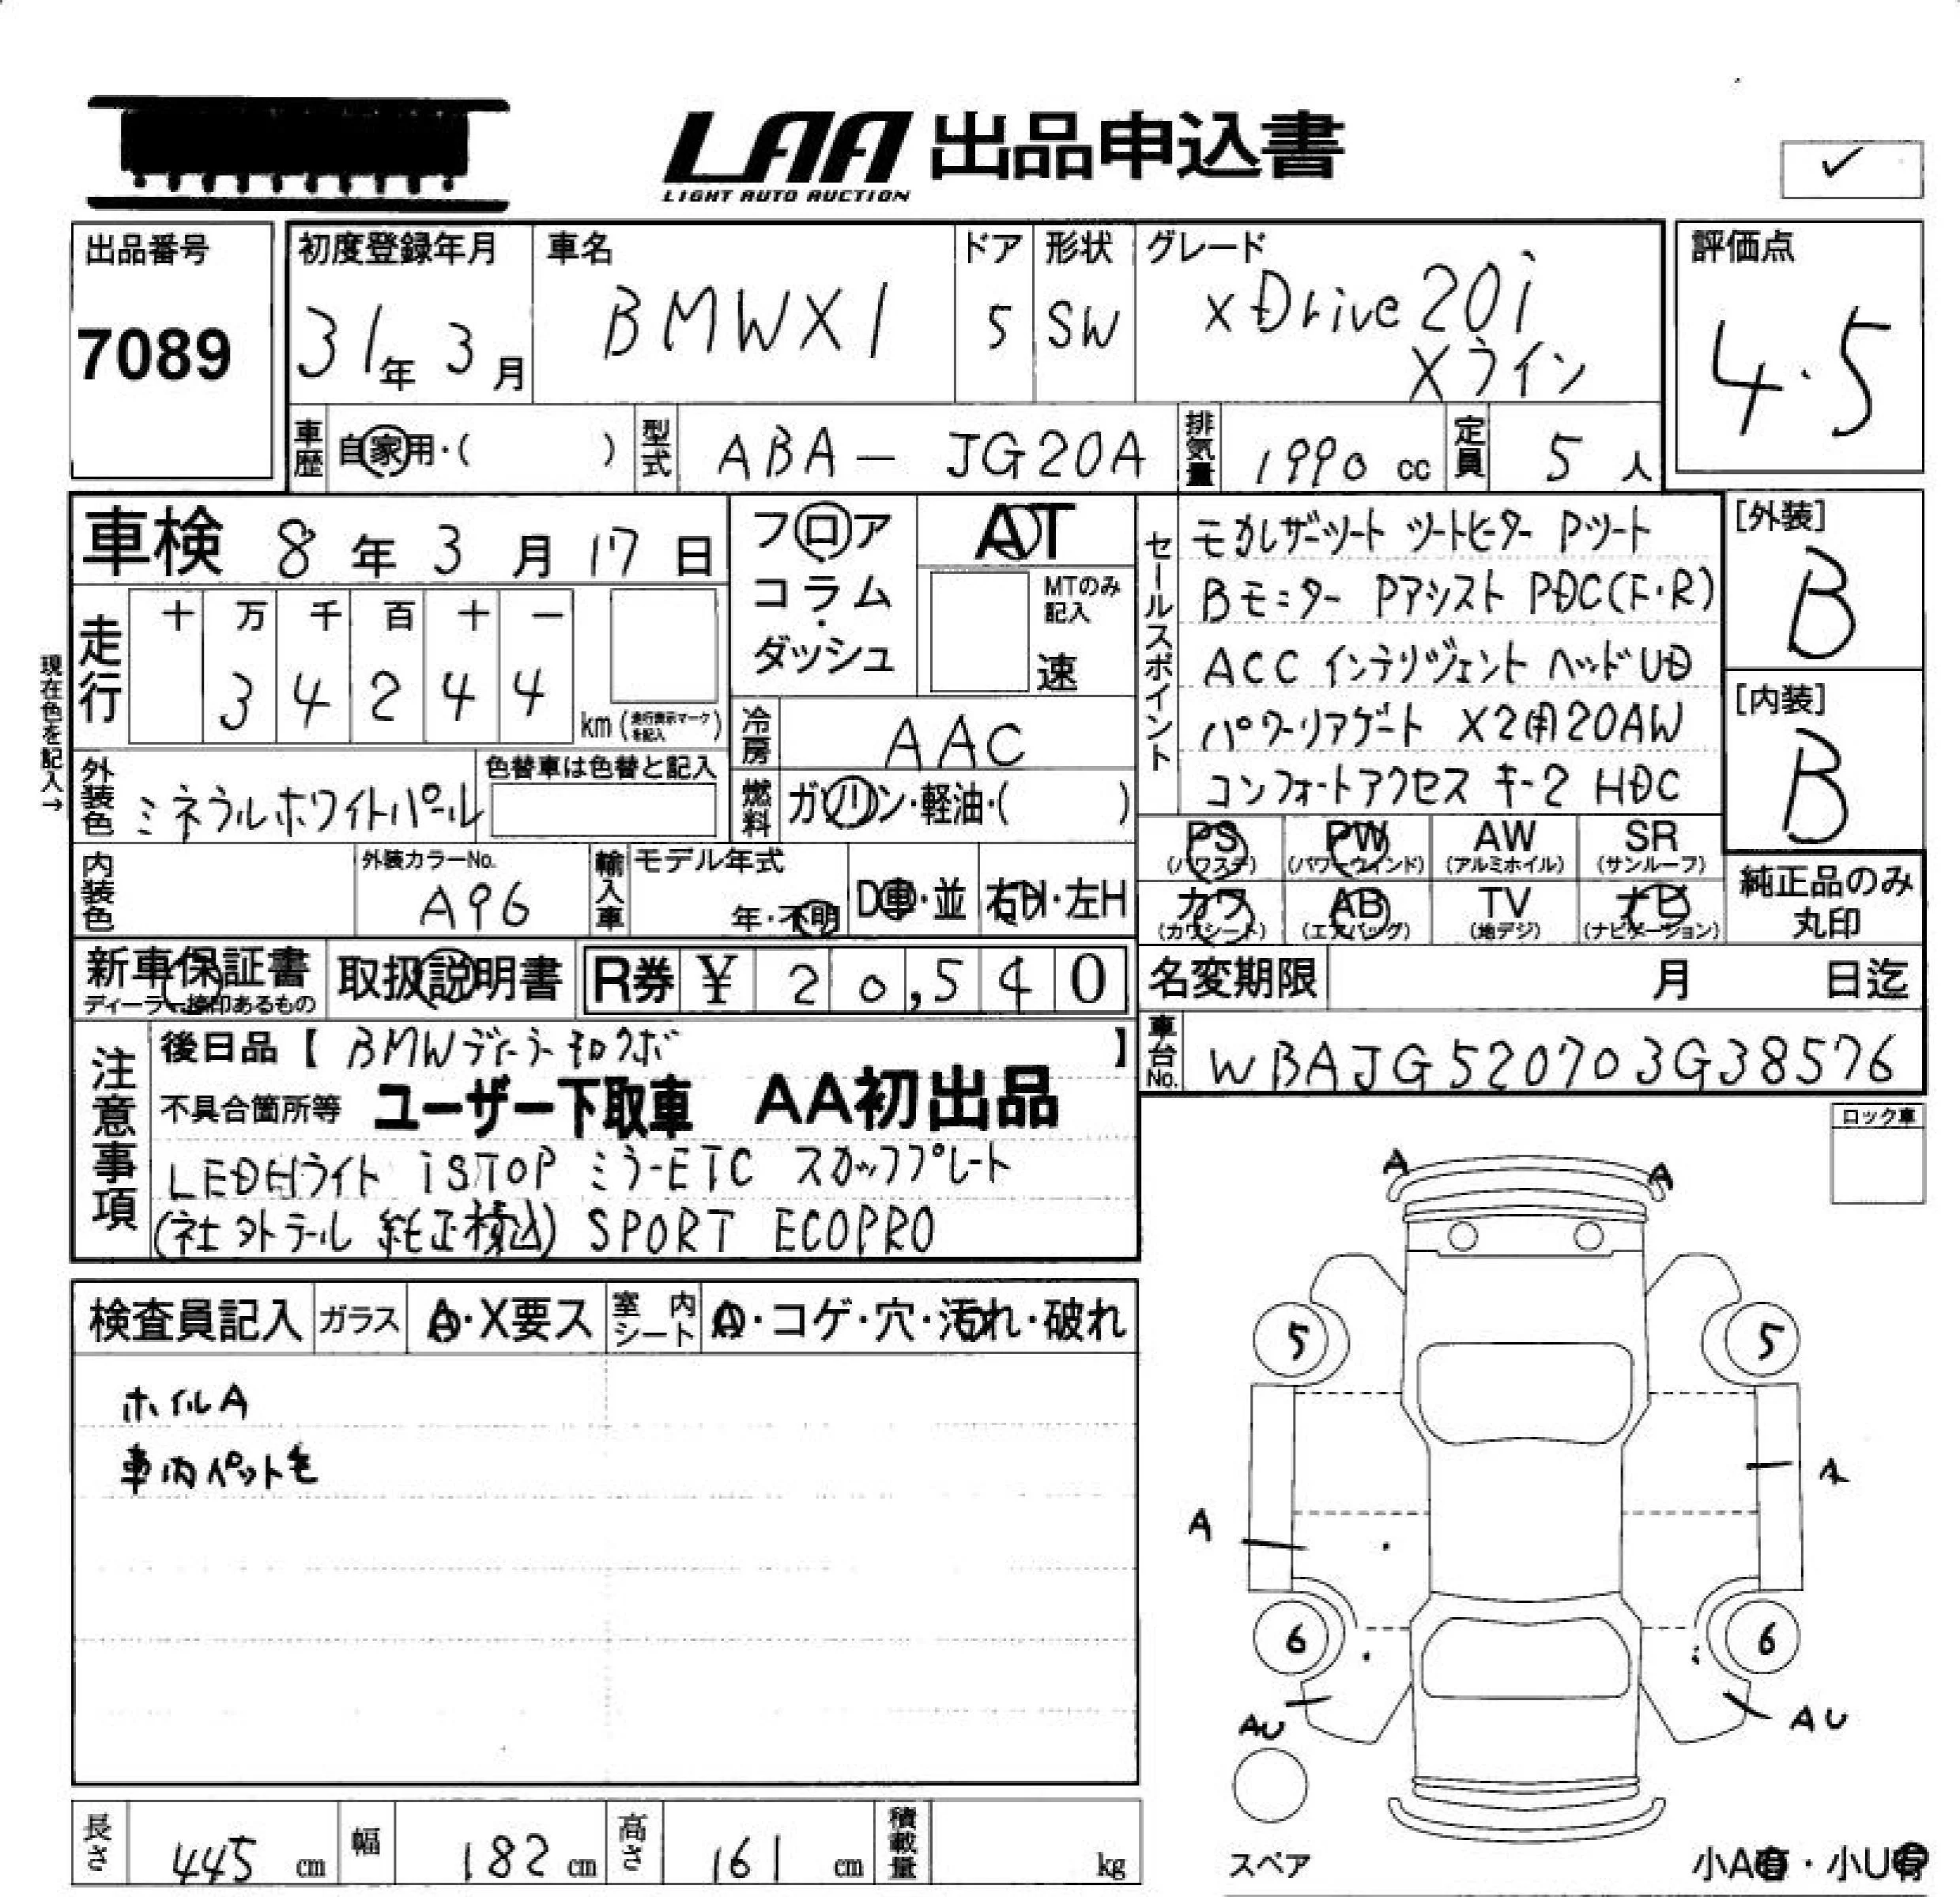 LAA 出品申込書
LIGHT AUTO AUCTION
✓
出品番号
7089
初度登録年月
31年 3月
車名
BMWX1
ドア
5
形状
SW
グレード
xDrive20i
Xライン
評価点
4.5
車歴 自家用・( )
型式 ABA- JG20A
排気量 1990 cc
定員 5 人
車検 8年 3月 17日
フロア
コラム
・
ダッシュ
AT
MTのみ
記入
速
セールスポイント
モカレザーシート シートヒーター Pシート
Bモニター Pアシスト PDC(F・R)
ACC インテリジェント ヘッドUD
パワーリアゲート X2用20AW
コンフォートアクセス キー2 HDC
[外装]
B
[内装]
B
現在色を記入→
走行
十 万 千 百 十 一
3 4 2 4 4
km (走行表示マークを記入)
冷房 AAC
外装色 ミネラルホワイトパール
色替車は色替と記入
燃料 ガソリン・軽油・( )
PS
(パワステ)
PW
(パワーウィンド)
AW
(アルミホイル)
SR
(サンルーフ)
カワ
(カワシート)
AB
(エアバッグ)
TV
(地デジ)
ナビ
(ナビゲーション)
純正品のみ
丸印
内装色
外装カラーNo.
A96
輸入車
モデル年式
年・不明
D車・並
右H・左H
新車保証書
ディーラー捺印あるもの
取扱説明書
R券 ¥ 20,540
名変期限 月 日迄
車台No. WBAJG520703G38576
注意事項
後日品【 BMWデーラー 】
不具合箇所等 ユーザー下取車 AA初出品
LEDHライト iSTOP ミラーETC スカッフプレート
(社外テール 純正積込) SPORT ECOPRO
ロック車
検査員記入
ガラス
A・X要ス
室内シート
A・コゲ・穴・汚れ・破れ
ホイルA
車内ペット毛
A A
5 5
A
A
6 6
AU AU
スペア
小A有・小U有
長さ 445 cm
幅 182 cm
高さ 161 cm
積載量 kg